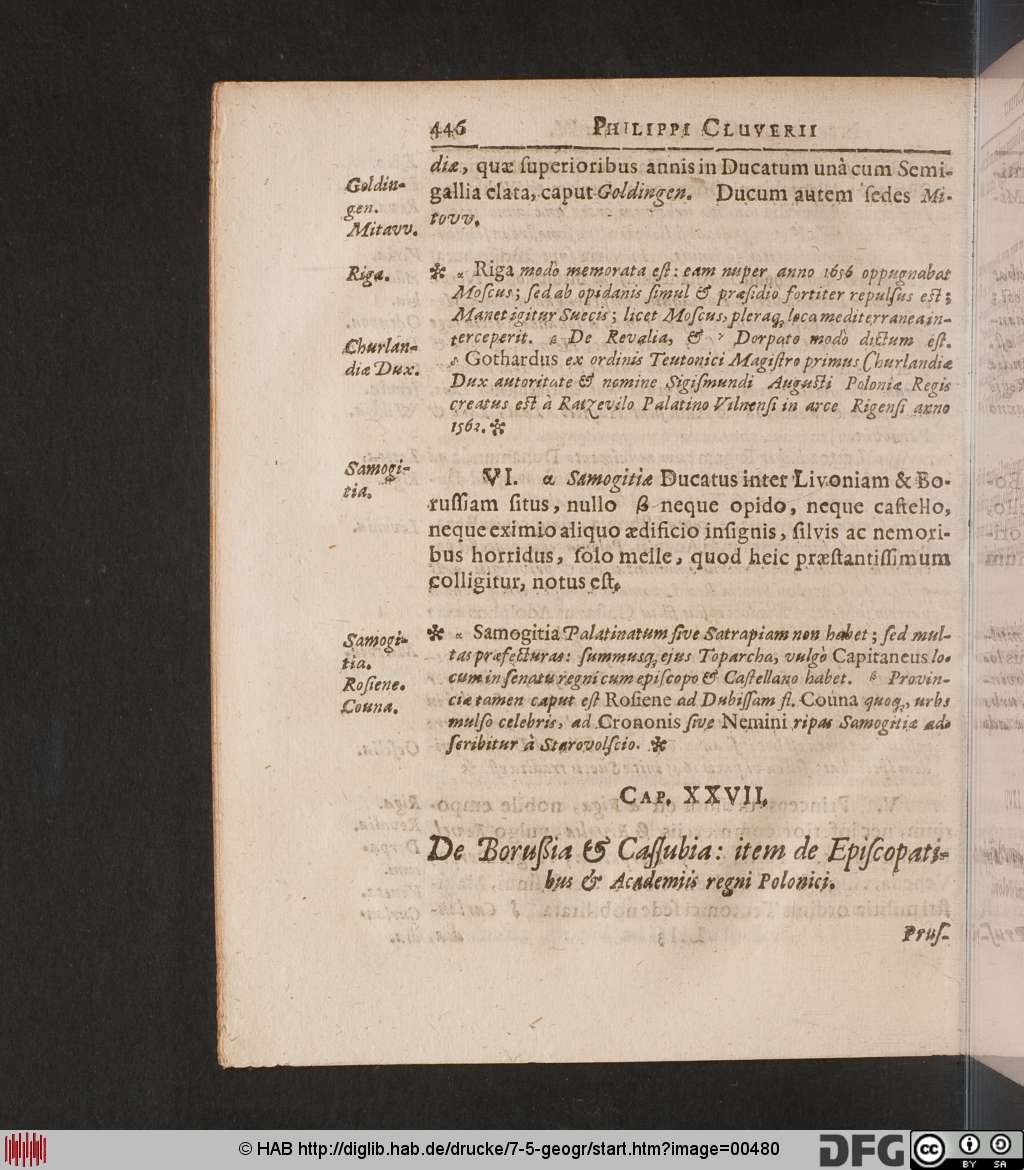 446 PHILIPPI CLUVERII
diæ, quæ ſuperioribus annis in Ducatum unà cum Semi-
gallia elata, caput Goldingen. Ducum autem ſedes Mi-
tovv.
Goldin-
gen.
Mitavv.
Riga.
* α Riga modò memorata eſt: eam nuper anno 1656 oppugnabat
Moſcus; ſed ab opidanis ſimul & præſidio fortiter repulſus eſt;
Manet igitur Suecis; licet Moſcus, pleraq, loca mediterranea in-
terceperit. β De Revalia, & γ Dorpato modò dictum eſt.
Churlan-
diæ Dux.
δ Gothardus ex ordinis Teutonici Magiſtro primus Churlandiæ
Dux autoritate & nomine Sigiſmundi Auguſti Poloniæ Regis
creatus eſt à Ratzevilo Palatino Vilnenſi in arce Rigenſi anno
1562. *
Samogi-
tia.
VI. α Samogitiæ Ducatus inter Livoniam & Bo-
ruſſiam ſitus, nullo β neque opido, neque caſtello,
neque eximio aliquo ædificio inſignis, ſilvis ac nemori-
bus horridus, ſolo melle, quod heic præſtantiſſimum
colligitur, notus eſt.
Samogi-
tia.
Roſiene.
Couna.
* α Samogitia Palatinatum ſive Satrapiam non habet; ſed mul-
tas præfecturas: ſummusq, ejus Toparcha, vulgò Capitaneus lo-
cum in ſenatu regni cum epiſcopo & Caſtellano habet. β Provin-
ciæ tamen caput eſt Roſiene ad Dubiſſam fl. Couna quoq,, urbs
mulſo celebris, ad Crononis ſive Nemini ripas Samogitiæ ad-
ſcribitur à Starovolſcio. *
CAP. XXVII.
De Borußia & Caſſubia: item de Epiſcopati-
bus & Academiis regni Polonici.
Pruſ-
© HAB http://diglib.hab.de/drucke/7-5-geogr/start.htm?image=00480
DFG
cc BY SA